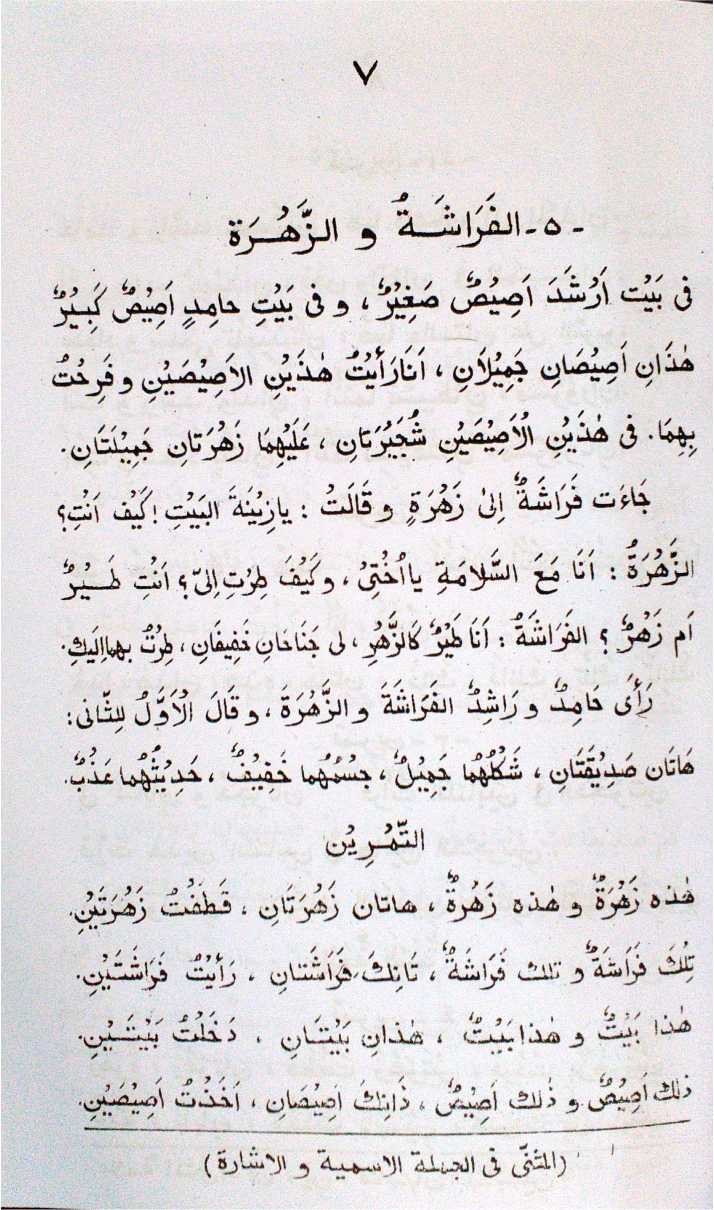 ٧
-٥- الفَرَاشَةُ و الزَّهْرَة
فى بَيْت اَرْشَدَ اَصِيْصٌ صَغِيْرٌ، و فى بَيْتِ حامِدٍ اَصِيْصٌ كَبِيْرٌ
هٰذَانِ اَصِيْصَانِ جَمِيْلَانِ، اَنَا رَأَيْتُ هٰذَيْنِ الاَصِيْصَيْنِ و فَرِحْتُ
بِهِمَا. فى هٰذَيْنِ الْاَصِيْصَيْنِ شُجَيْرَتَانِ، عَلَيْهِمَا زَهْرَتَانِ جَمِيْلَتَانِ.
جَاءَت فَرَاشَةٌ اِلىٰ زَهْرَةٍ و قَالَتْ: يازِيْنَةَ البَيْتِ! كَيْفَ اَنْتِ؟
الزَّهْرَةُ: اَنَا مَعَ السَّلَامَةِ يا اُخْتِىْ، و كَيْفَ طِرْتِ اِلىَّ؟ اَنْتِ طَيْرٌ
اَم زَهْرٌ؟ الفَرَاشَةُ: اَنَا طَيْرٌ كَالزَّهْرِ، لى جَنَاحَانِ خَفِيْفَانِ، طِرْتُ بهما اِلَيْكِ.
رَأَى حَامِدٌ و رَاشِدٌ الفَرَاشَةَ و الزَّهْرَةَ، و قَالَ الْاَوَّلُ لِلثَّانى:
هَاتَان صَدِيْقَتَانِ، شَكْلُهُما جَمِيْلٌ، جِسْمُهُما خَفِيْفٌ، حَدِيْثُهُما عَذْبٌ.
التَّمْرِيْن
هٰذه زَهْرَةٌ و هٰذه زَهْرةٌ، هاتان زَهْرَتَانِ، قَطَفْتُ زَهْرَتَيْنِ.
تِلْكَ فَرَاشَةٌ و تلك فَرَاشَةٌ، تَانِكَ فَرَاشَتَانِ، رَأَيْتُ فَرَاشَتَيْنِ.
هٰذا بَيْتٌ و هٰذا بَيْتٌ، هٰذانِ بَيْتَانِ، دَخَلْتُ بَيْتَيْنِ.
ذٰلك اَصِيْصٌ و ذٰلك اَصِيْصٌ، ذَانِكَ اَصِيْصَانِ، اَخَذْتُ اَصِيْصَيْنِ.
(المثنّى فى الجملة الاسمية و الاشارة)